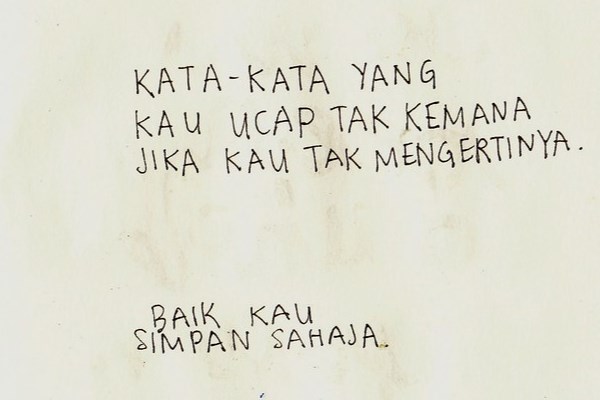 KATA-KATA YANG
KAU UCAP TAK KEMANA
JIKA KAU TAK MENGERTINYA.
BAIK KAU
SIMPAN SAHAJA.